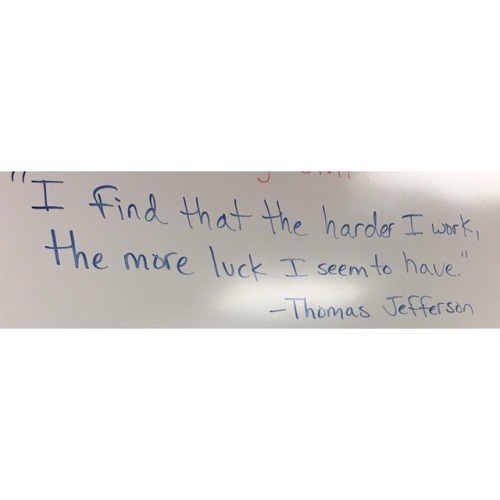 "I find that the harder I work,
the more luck I seem to have."
-Thomas Jefferson